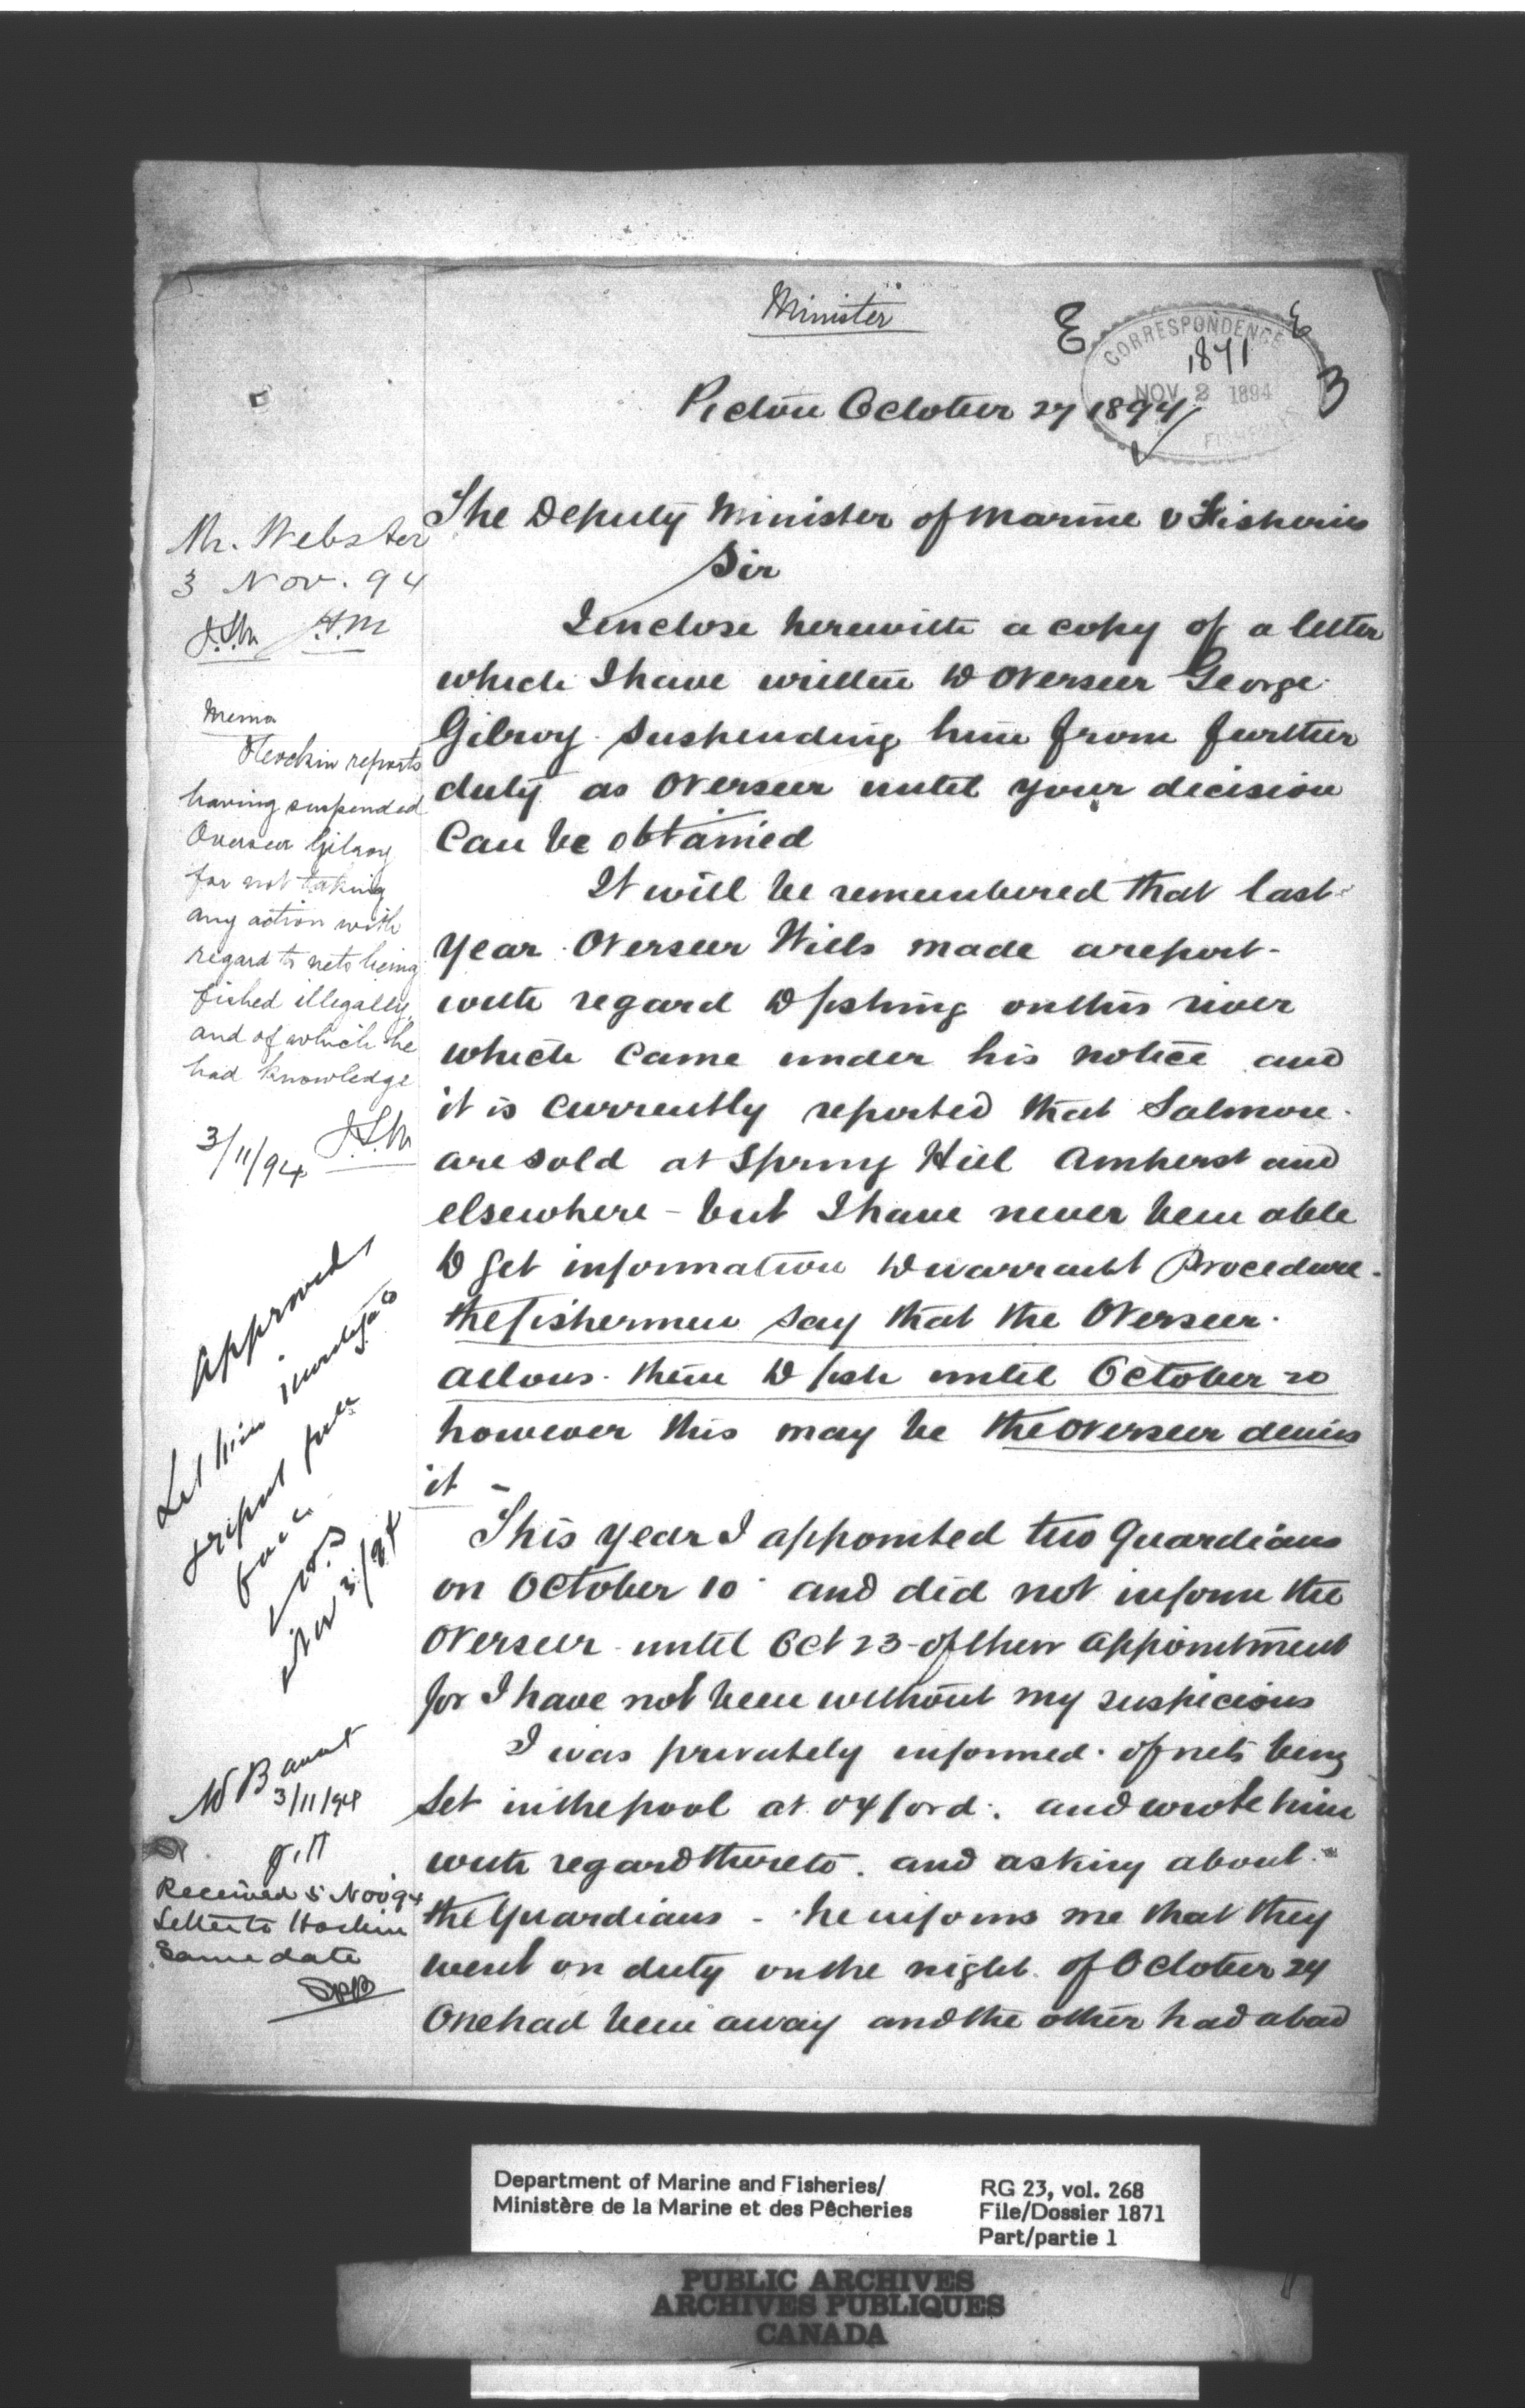 Minister
E
E
CORRESPONDENCE
1871
NOV 2 1894
FISHERIES
3
Pictou October 27 1894
The Deputy Minister of Marine & Fisheries
Sir
I enclose herewith a copy of a letter
which I have written to Overseer George
Gilroy suspending him from further
duty as Overseer until your decision
Can be obtained
It will be remembered that last
year Overseer Wills made a report-
with regard to fishing on this river
which Came under his notice and
it is Currently reported that Salmon
are sold at Spring Hill Amherst and
elsewhere - but I have never been able
to get information to warrant Procedure.
the fishermen say that the Overseer
allows them to fish until October 20
however this may be the Overseer denies
it -
This year I appointed two Guardians
on October 10 and did not inform the
Overseer until Oct 23 - of their appointment
for I have not been without my suspicions
I was privately informed of nets being
Set in the pool at Oxford. and wrote him
with regard thereto. and asking about
the Guardians - he informs me that they
went on duty on the night of October 24
One had been away and the other had a bad
Mr. Webster
3 Nov. 94
J.S.W. J.H.M
Memo
Hockin reports
having suspended
Overseer Gilroy
for not taking
any action with
regard to nets being
fished illegally,
and of which he
had knowledge
3/11/94
Approved
Let him investigate
& report full
Nov 3/94
3/11/94
Received 5 Nov 94
Letter to Hockin
Same date
Department of Marine and Fisheries/
Ministère de la Marine et des Pêcheries
RG 23, vol. 268
File/Dossier 1871
Part/partie 1
PUBLIC ARCHIVES
ARCHIVES PUBLIQUES
CANADA